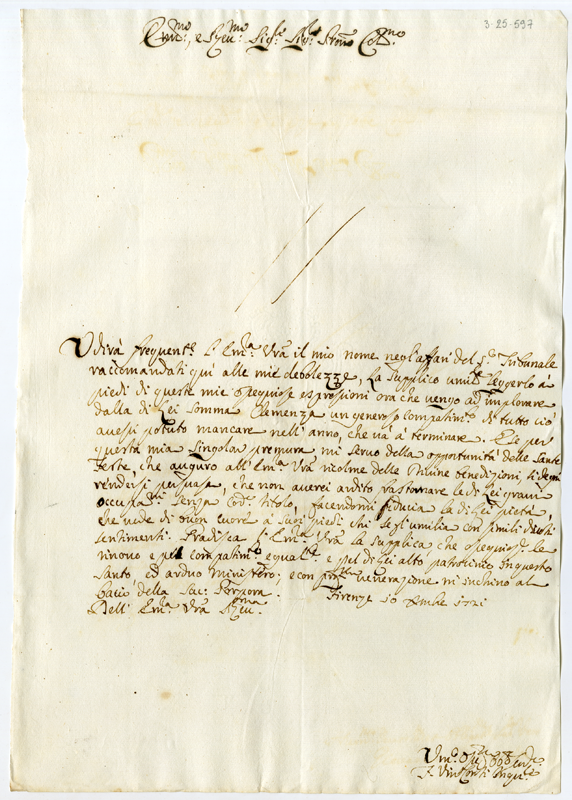 3-25-597
Em.mo, e R.mo Sig.re Sig.re Pron.e Col.mo
Udirà frequent.e l'Em.a Vra il mio nome negl'affari del S. Tribunale
raccomandati quì alle mie debolezze, La supplico umil.te leggerlo a
piedi di queste mie ossequiose espressioni ora che vengo ad implorare
dalla di Lei somma Clemenza un generoso compatim.to di tutto ciò
avessi potuto mancare nell'anno, che và a terminare. E se per
questa mia singolar premura mi servo della opportunità delle Sante
feste, che auguro all'Em.a Vra ricolme delle Divine benedizioni, si degni
rendersi persuasa, che non averei ardito frastornare le di Lei gravi
occupa.ni senza titolo, facendomi fiducia la di Lei pietà,
che vede di buon cuore a suoi piedi chi se gl'umilia con simili divoti
sentimenti. Gradisca l'Em.a Vra la supplica che ossequioso le
rinovo e pel compatim.to egual.te e pel di Lei alto patrocinio in questo
santo, ed arduo ministero; e con prof.a venerazione mi inchino al
bacio della Sac. Porpora. Firenze 10 Xmbre 1721
Dell' Em.a Vra R.ma
Um.o
F. Vin.